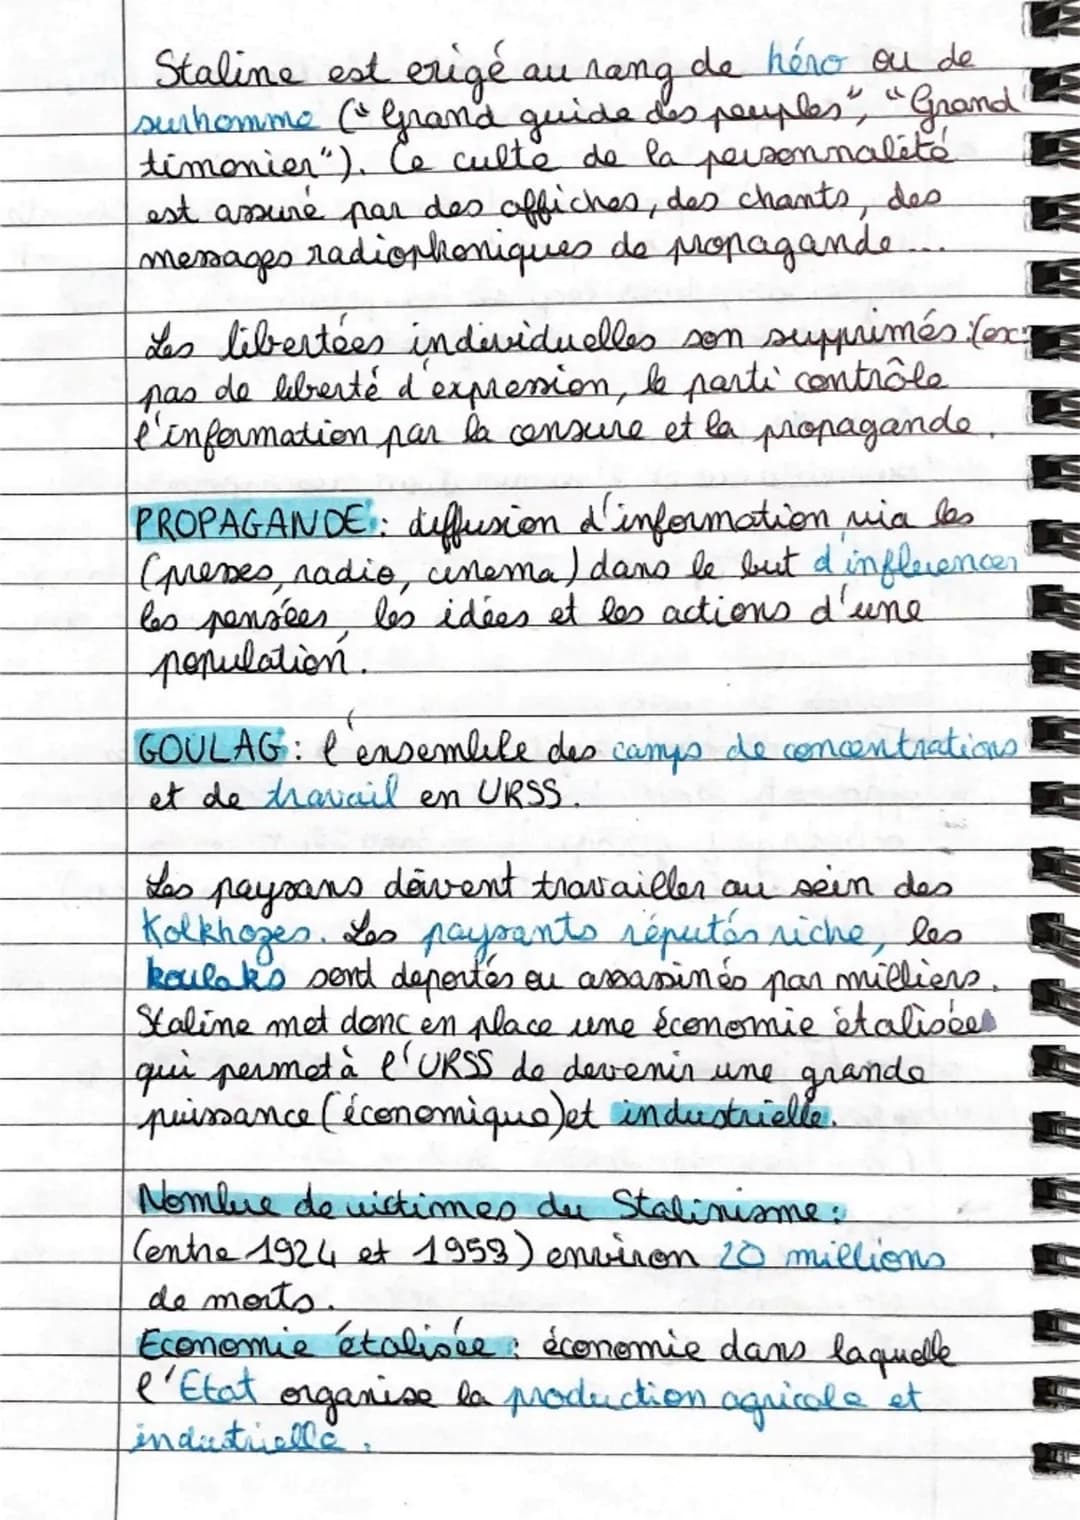 Staline est erigé au rang de héro ou de
surhomme ("Grand guide des peuples", "Grand
timonier"). Ce culte de la personnalité
est assuré par des affiches, des chants, des
messages radiophoniques de propagande...
Les libertées individuelles son supprimés :(ex:
pas de liberté d'expression, le parti contrôle
l'information par la censure et la propagande.
PROPAGANDE : diffusion d'information via les
(presses, radio, cinema) dans le but d'influencer
les pensées, les idées et les actions d'une
population.
GOULAG : l'ensemble des camps de concentrations
et de travail en URSS.
Les paysans doivent travailler au sein des
Kolkhozes. Les paysants réputés riche, les
koulaks sont deportés ou assassinés par milliers.
Staline met donc en place une économie étalisée
qui permet à l'URSS de devenir une grande
puissance (économique) et industrielle.
Nombre de victimes du Stalinisme :
(entre 1924 et 1953) environ 20 millions
de morts.
Economie étalisée : économie dans laquelle
l'Etat organise la production agricole et
industrielle.